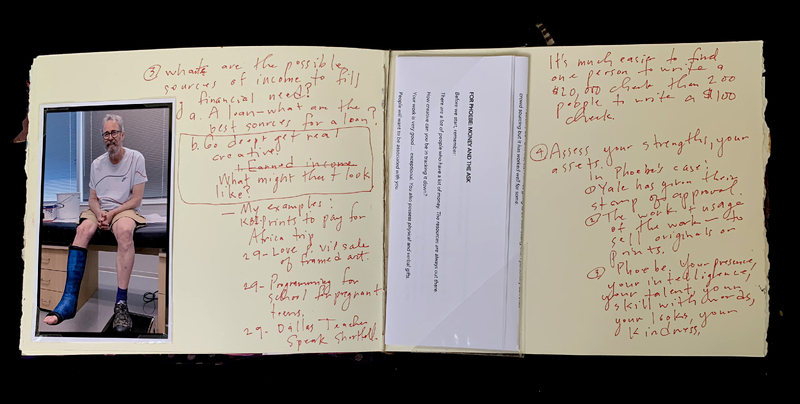 ③ What are the possible
sources of income to fill
financial need?
a. A loan – what are the
best sources for a loan?
b. Go deep + get real
creative!
1. Earned income
What might that look
like?
– My examples:
prints to pay for
Africa trip
29 – Love, evil sale
of framed art.
29 – Programming for
school for pregnant
teens.
29. Dallas Teacher
Speak Shortfall.
crowd sourcing but it has worked well for some
FOR PHOEBE: MONEY AND THE ASK
Before we start, remember:
There are a lot of people who have a lot of money. The resources are always out there.
How creative can you be in tracking it down?
Your work is very good ... exceptional. You also possess physical and verbal gifts
People will want to be associated with you.
It's much easier to find
one person to write a
$20,000 check than 200
people to write a $100
check.
④ Assess your strengths, your
assets.
in Phoebe's case:
① Yale has given their
stamp of approval.
② The work + usage
of the work – to
sell originals or
prints.
③ Phoebe: Your presence,
your intelligence,
your talent, your
skill with words,
your looks, your
kindness.